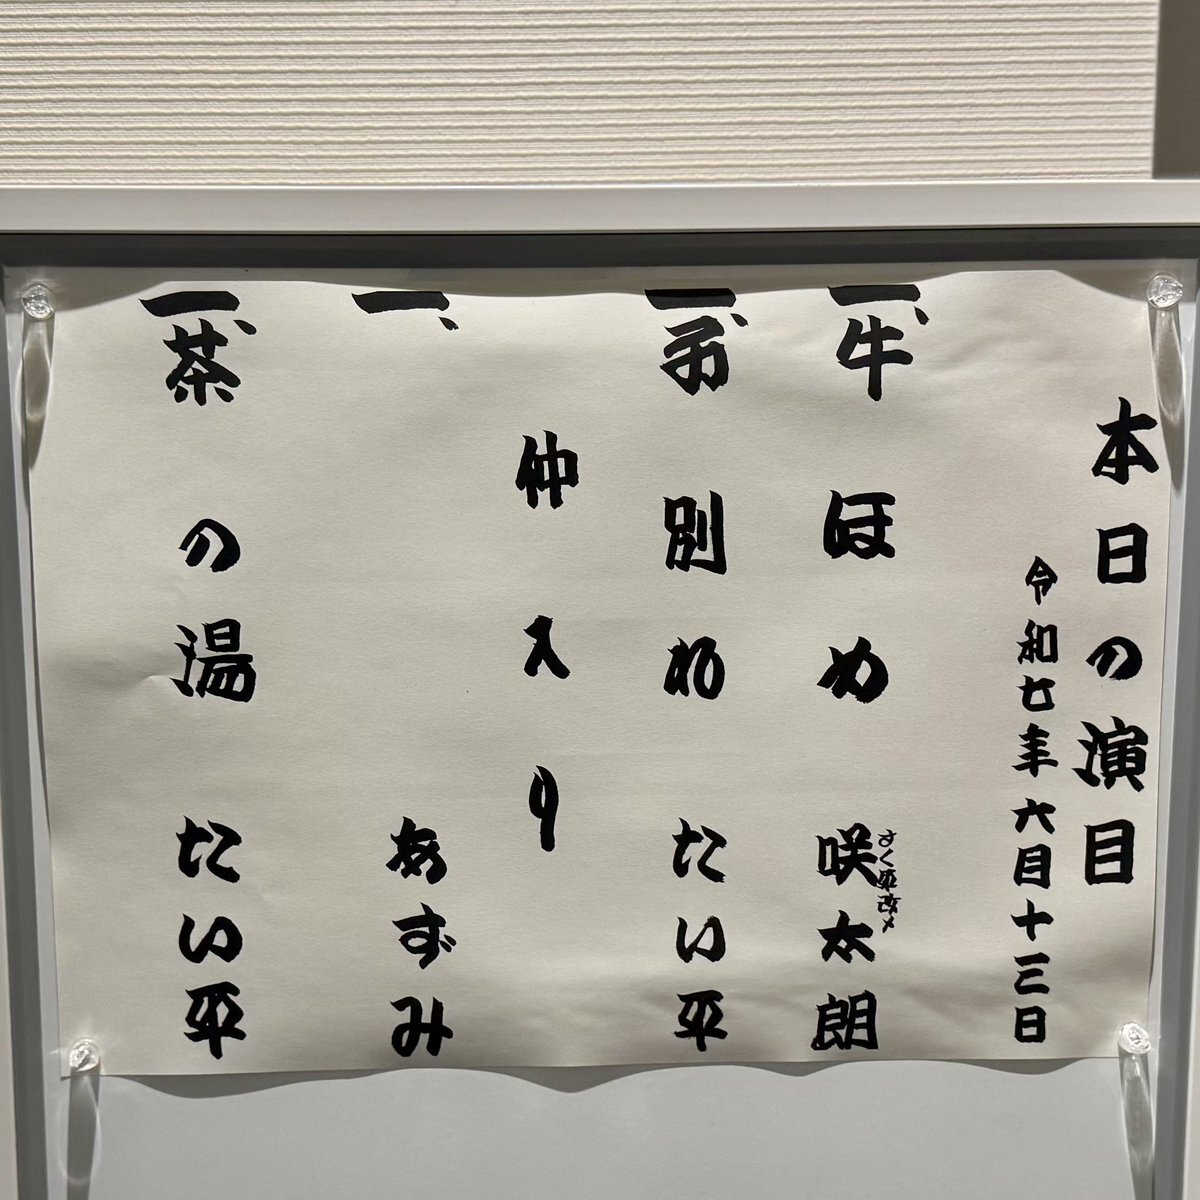 本日の演目
令和七年六月十三日
一、牛ほめ さく平改メ 咲太朗
一、別れ たい平
仲入り
一、 あずみ
一、茶の湯 たい平